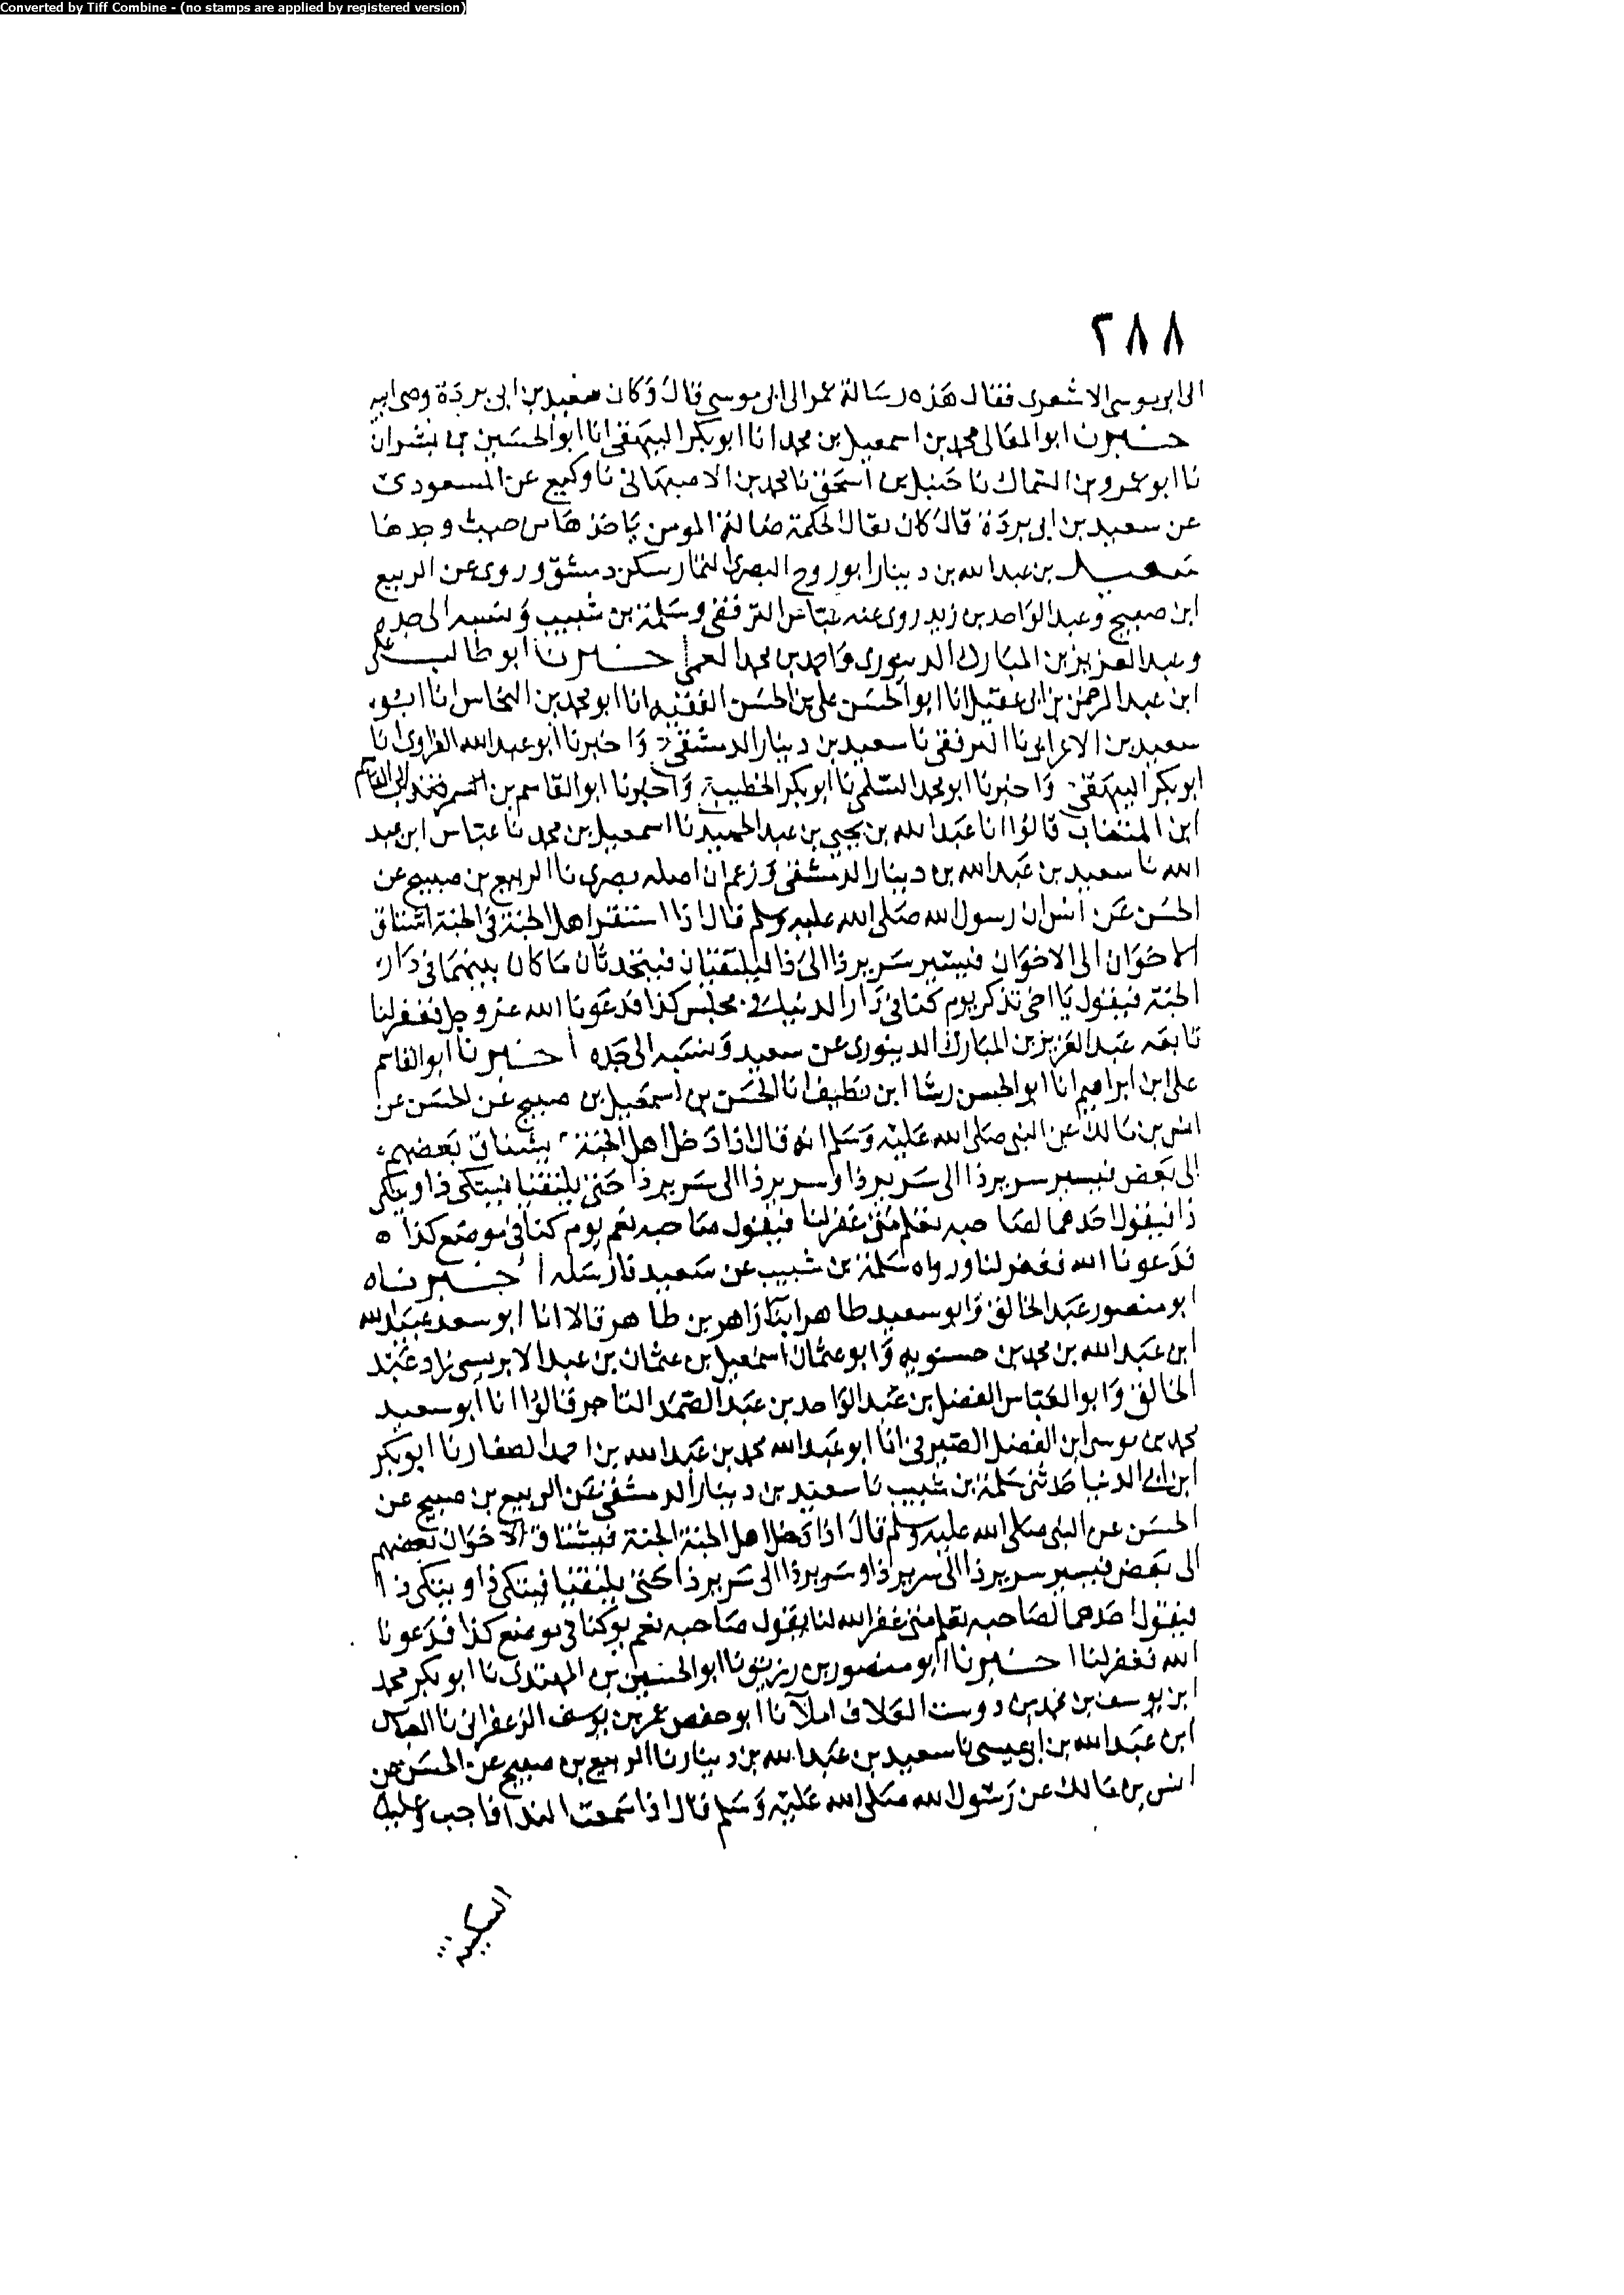 Converted by Tiff Combine - (no stamps are applied by registered version)
٢٨٨
الى ابى موسى الاشعرى فقال هذه رسالة عمر الى ابى موسى قال وكان سعيد بن ابى بردة وصى ابيه
اخبرنا ابو المعالى محمد بن اسمعيل بن محمد انا ابو بكر البيهقى انا ابو الحسين بن بشران
نا ابو عمرو بن السماك نا حنبل بن اسحق نا محمد بن الاصبهانى نا وكيع عن المسعودى
عن سعيد بن ابى بردة قال كان يقال الحكمة ضالة المومن ياخذها من حيث وجدها
سعيد بن عبد الله بن دينار ابو روح البصرى التمار سكن دمشق وروى عن الربيع
ابن صبيح وعبد الواحد بن زيد روى عنه عباس الترقفى وسلمة بن شبيب ونسبه الى جده
وعبد العزيز بن المبارك الدينورى واحمد بن محمد العمى اخبرنا ابو طالب على
ابن عبد الرحمن بن ابى عقيل انا ابو الحسن على بن الحسن الفقيه انا ابو محمد بن النحاس انا ابو
سعيد بن الاعرابى نا الترقفى نا سعيد بن دينار الدمشقى واخبرنا ابو عبد الله الفراوى انا
ابو بكر البيهقى واخبرنا ابو محمد السلمى نا ابو بكر الخطيب واخبرنا ابو القاسم بن السمرقندى انا ابو القاسم
ابن قالوا انا عبد الله بن يحيى بن عبد الحميد نا اسمعيل بن محمد نا عباس ابن عبد
الله نا سعيد بن عبد الله بن دينار الدمشقى وزعم ان اصله بصرى نا الربيع بن صبيح عن
الحسن عن انس ان رسول الله صلى الله عليه وسلم قال اذا استقر اهل الجنة فى الجنة اشتاق
الاخوان الى الاخوان فيسير سرير ذا الى ذا فيلتقيان فيتحدثان ما كان بينهما فى دار
الجنة فيقول يا اخى تذكر يوم كنا فى دار الدنيا فى مجلس كذا فدعونا الله عز وجل فغفر لنا
تابعه عبد العزيز بن المبارك الدينورى عن سعيد ونسبه الى جده اخبرنا ابو القاسم
على ابن ابراهيم انا ابو الحسن رشا ابن نظيف انا الحسن بن اسمعيل بن صبيح عن الحسن عن
انس بن مالك عن النبى صلى الله عليه وسلم انه قال اذا دخل اهل الجنة يشتاق بعضهم
الى بعض فيسير سرير ذا الى سرير ذا وسرير ذا الى سرير ذا حتى يلتقيا فيتكى ذا ويتكى
ذا فيقول احدهما لصاحبه تعلم متى غفر لنا فيقول صاحبه نعم يوم كنا فى موضع كذا
فدعونا الله فغفر لنا ورواه سلمة بن شبيب عن سعيد فارسله اخبرناه
ابو منصور عبد الخالق وابو سعيد طاهر ابنا زاهر بن طاهر قالا انا ابو سعد عبيد الله
ابن عبد الله بن محمد بن حسنويه وابو عثمان اسمعيل بن عثمان بن عبد الابريسمى زاد عبد
الخالق وابو العباس الفضل بن عبد الواحد بن عبد الصمد التاجر قالوا انا ابو سعيد
محمد بن موسى ابن الفضل الصيرفى انا ابو عبد الله محمد بن عبد الله بن احمد الصفار نا ابو بكر
ابن ابى الدنيا حدثنى سلمة بن شبيب نا سعيد بن دينار الدمشقى عن الربيع بن صبيح عن
الحسن عن النبى صلى الله عليه وسلم قال اذا دخل اهل الجنة الجنة فيشتاق الاخوان بعضهم
الى بعض فيسير سرير ذا الى سرير ذا وسرير ذا الى سرير ذا حتى يلتقيا فيتكى ذا ويتكى ذا
فيقول احدهما لصاحبه تعلم متى غفر الله لنا يقول صاحبه نعم يوم كنا فى موضع كذا فدعونا
الله فغفر لنا اخبرنا ابو منصور بن زريق نا ابو الحسين بن المهتدى نا ابو بكر محمد
ابن يوسف بن محمد بن دوست العلاف املا نا ابو حفص عمر بن يوسف الزعفرانى نا العباس
ابن عبد الله بن ابى عيسى نا سعيد بن عبد الله بن دينار نا الربيع بن صبيح عن الحسن عن
انس بن مالك عن رسول الله صلى الله عليه وسلم قال اذا سمعت الندا فاجب وعليك
السكينة